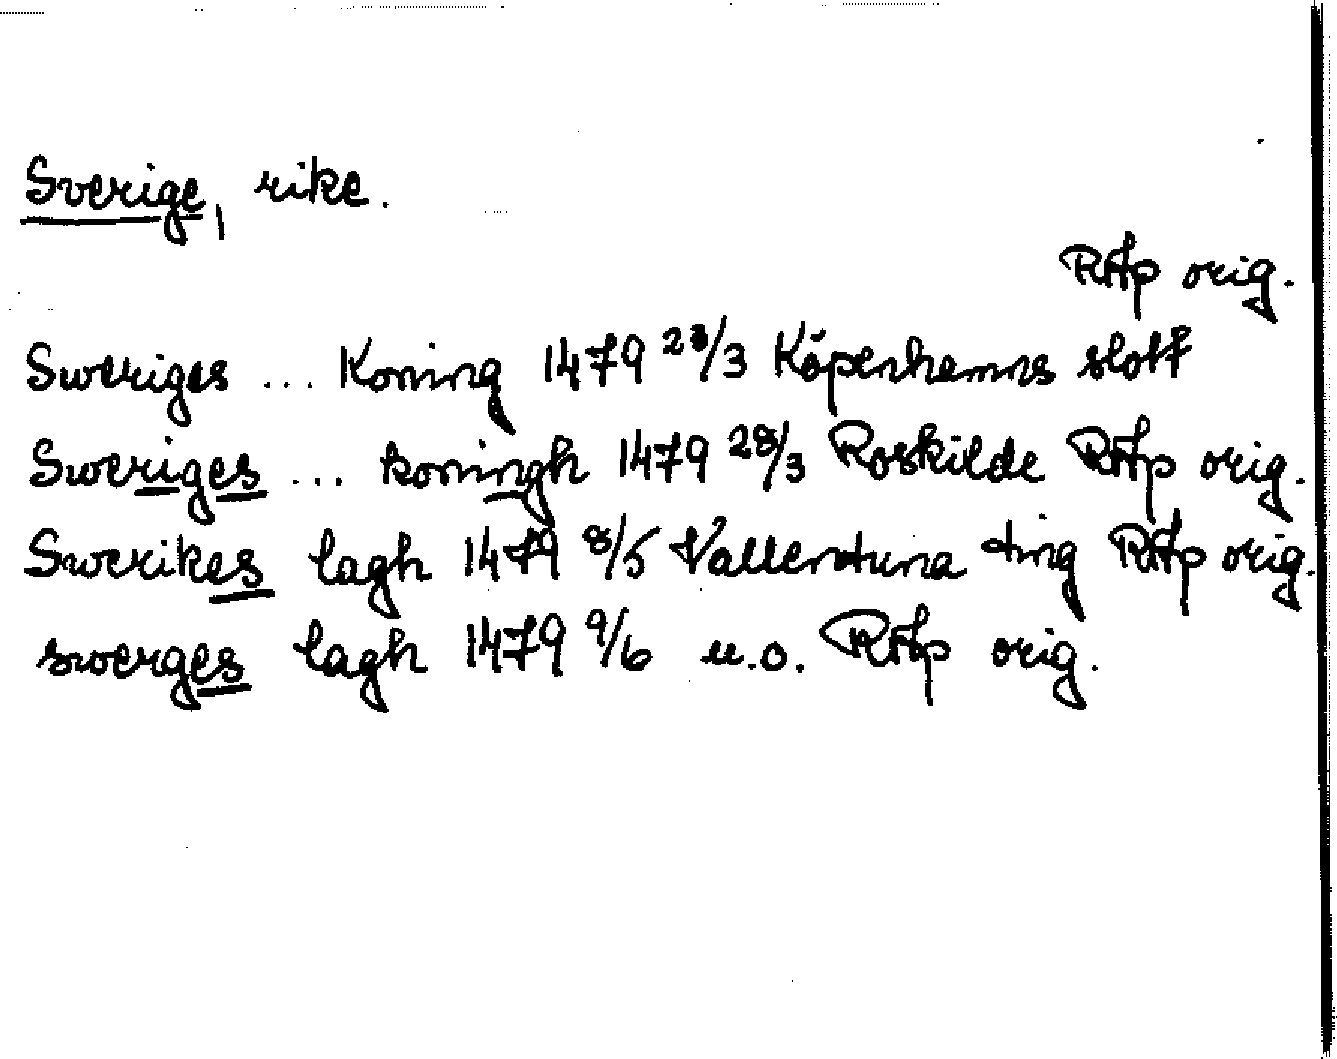 Sverige, rike.
RAp orig.
Sweriges ... Koning 1479 23/3 Köpenhamns slott
Sweriges ... koningh 1479 28/3 Roskilde RAp orig.
Swerikes lagh 1479 8/5 Vallentuna ting RAp orig.
swerges lagh 1479 9/6 u.o. RAp orig.